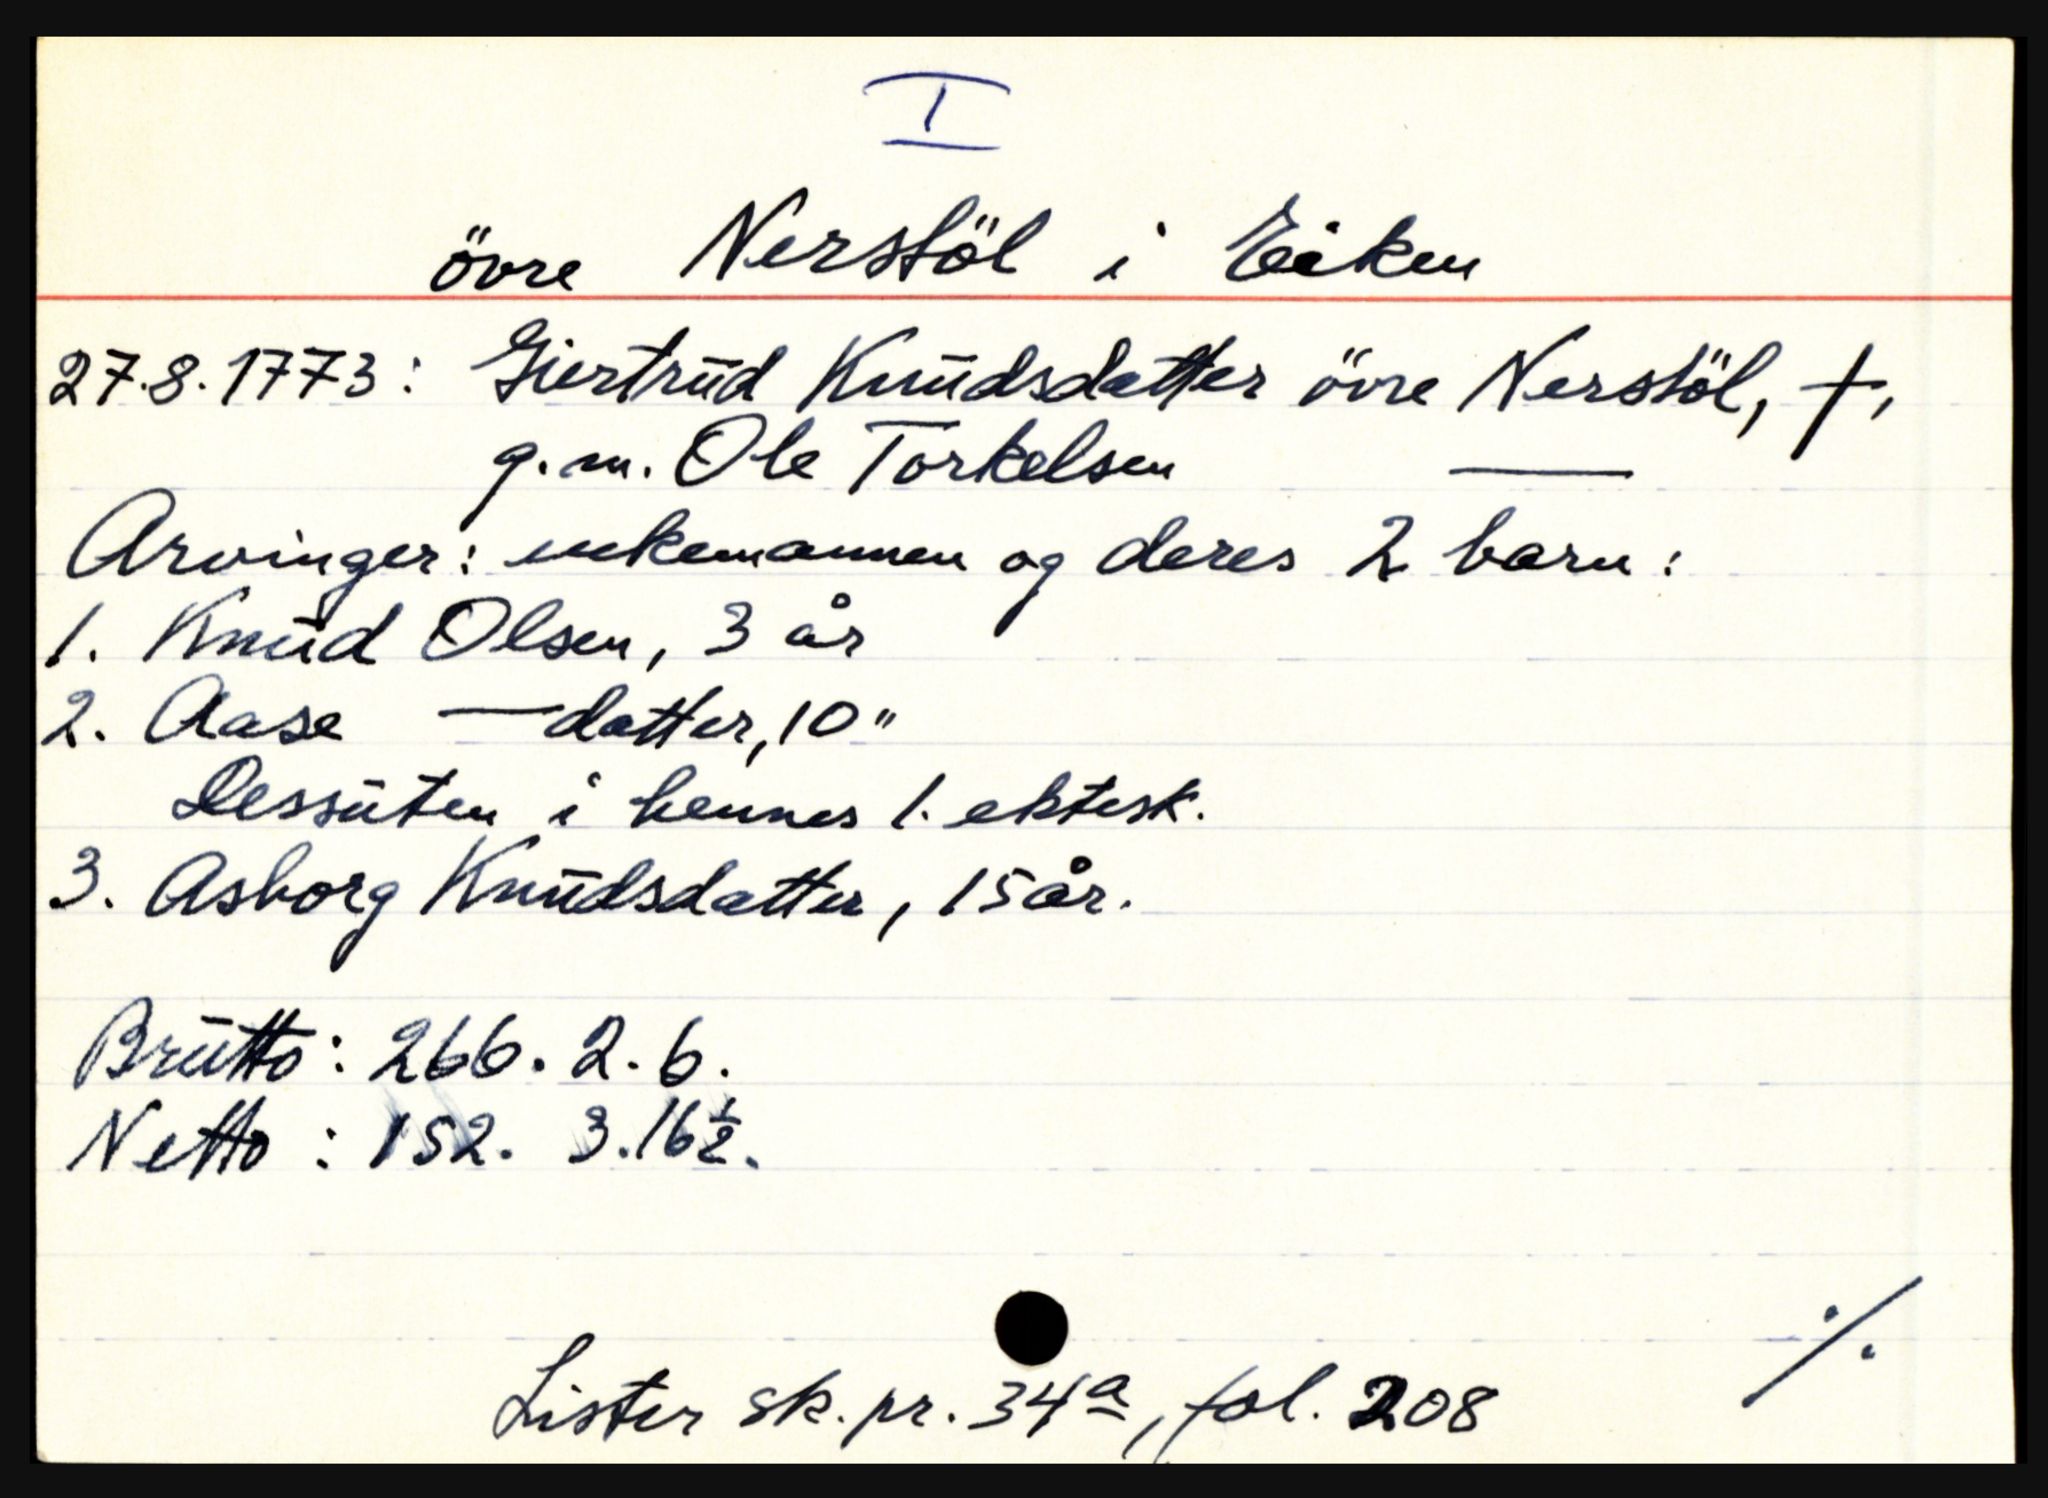 I
övre Nerstöl i Eiken
27.8.1773: Giertrud Knudsdatter övre Nerstöl, †,
g.m. Ole Torkelsen —
Arvinger: enkemannen og deres 2 barn:
1. Knud Olsen, 3 år
2. Aase — datter, 10 "
Dessuten i hennes 1. ektesk.
3. Asborg Knudsdatter, 15 år.
Brutto: 266. 2. 6.
Netto: 152. 3. 16 1/2.
./.
Lister sk. pr. 34a, fol. 208